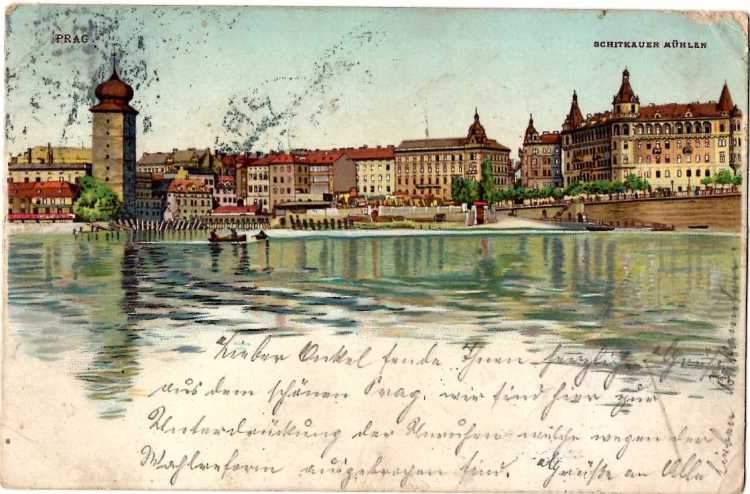 PRAG.
SCHITKAUER MÜHLEN
Lieber Onkel sende Ihnen herzliche Grüße
aus dem schönen Prag. wir sind hier zur
Unterdrückung der Unruhen welche wegen der
Wahlreform ausgebrochen sind. Grüße an Alle